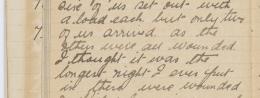 1. Six of us set out with
a load each but only two
7. of us arrived as the
others were all wounded
I thought it was the
longest night I ever put
in there were wounded